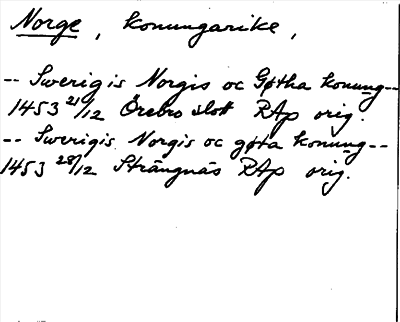 Norge, konungarike,
-- Swerigis Norgis oc Gøtha konung--
1453 21/12 Örebro slott RAp orig.
-- Swerigis Norgis oc gøta konung--
1453 28/12 Strängnäs RAp orig.